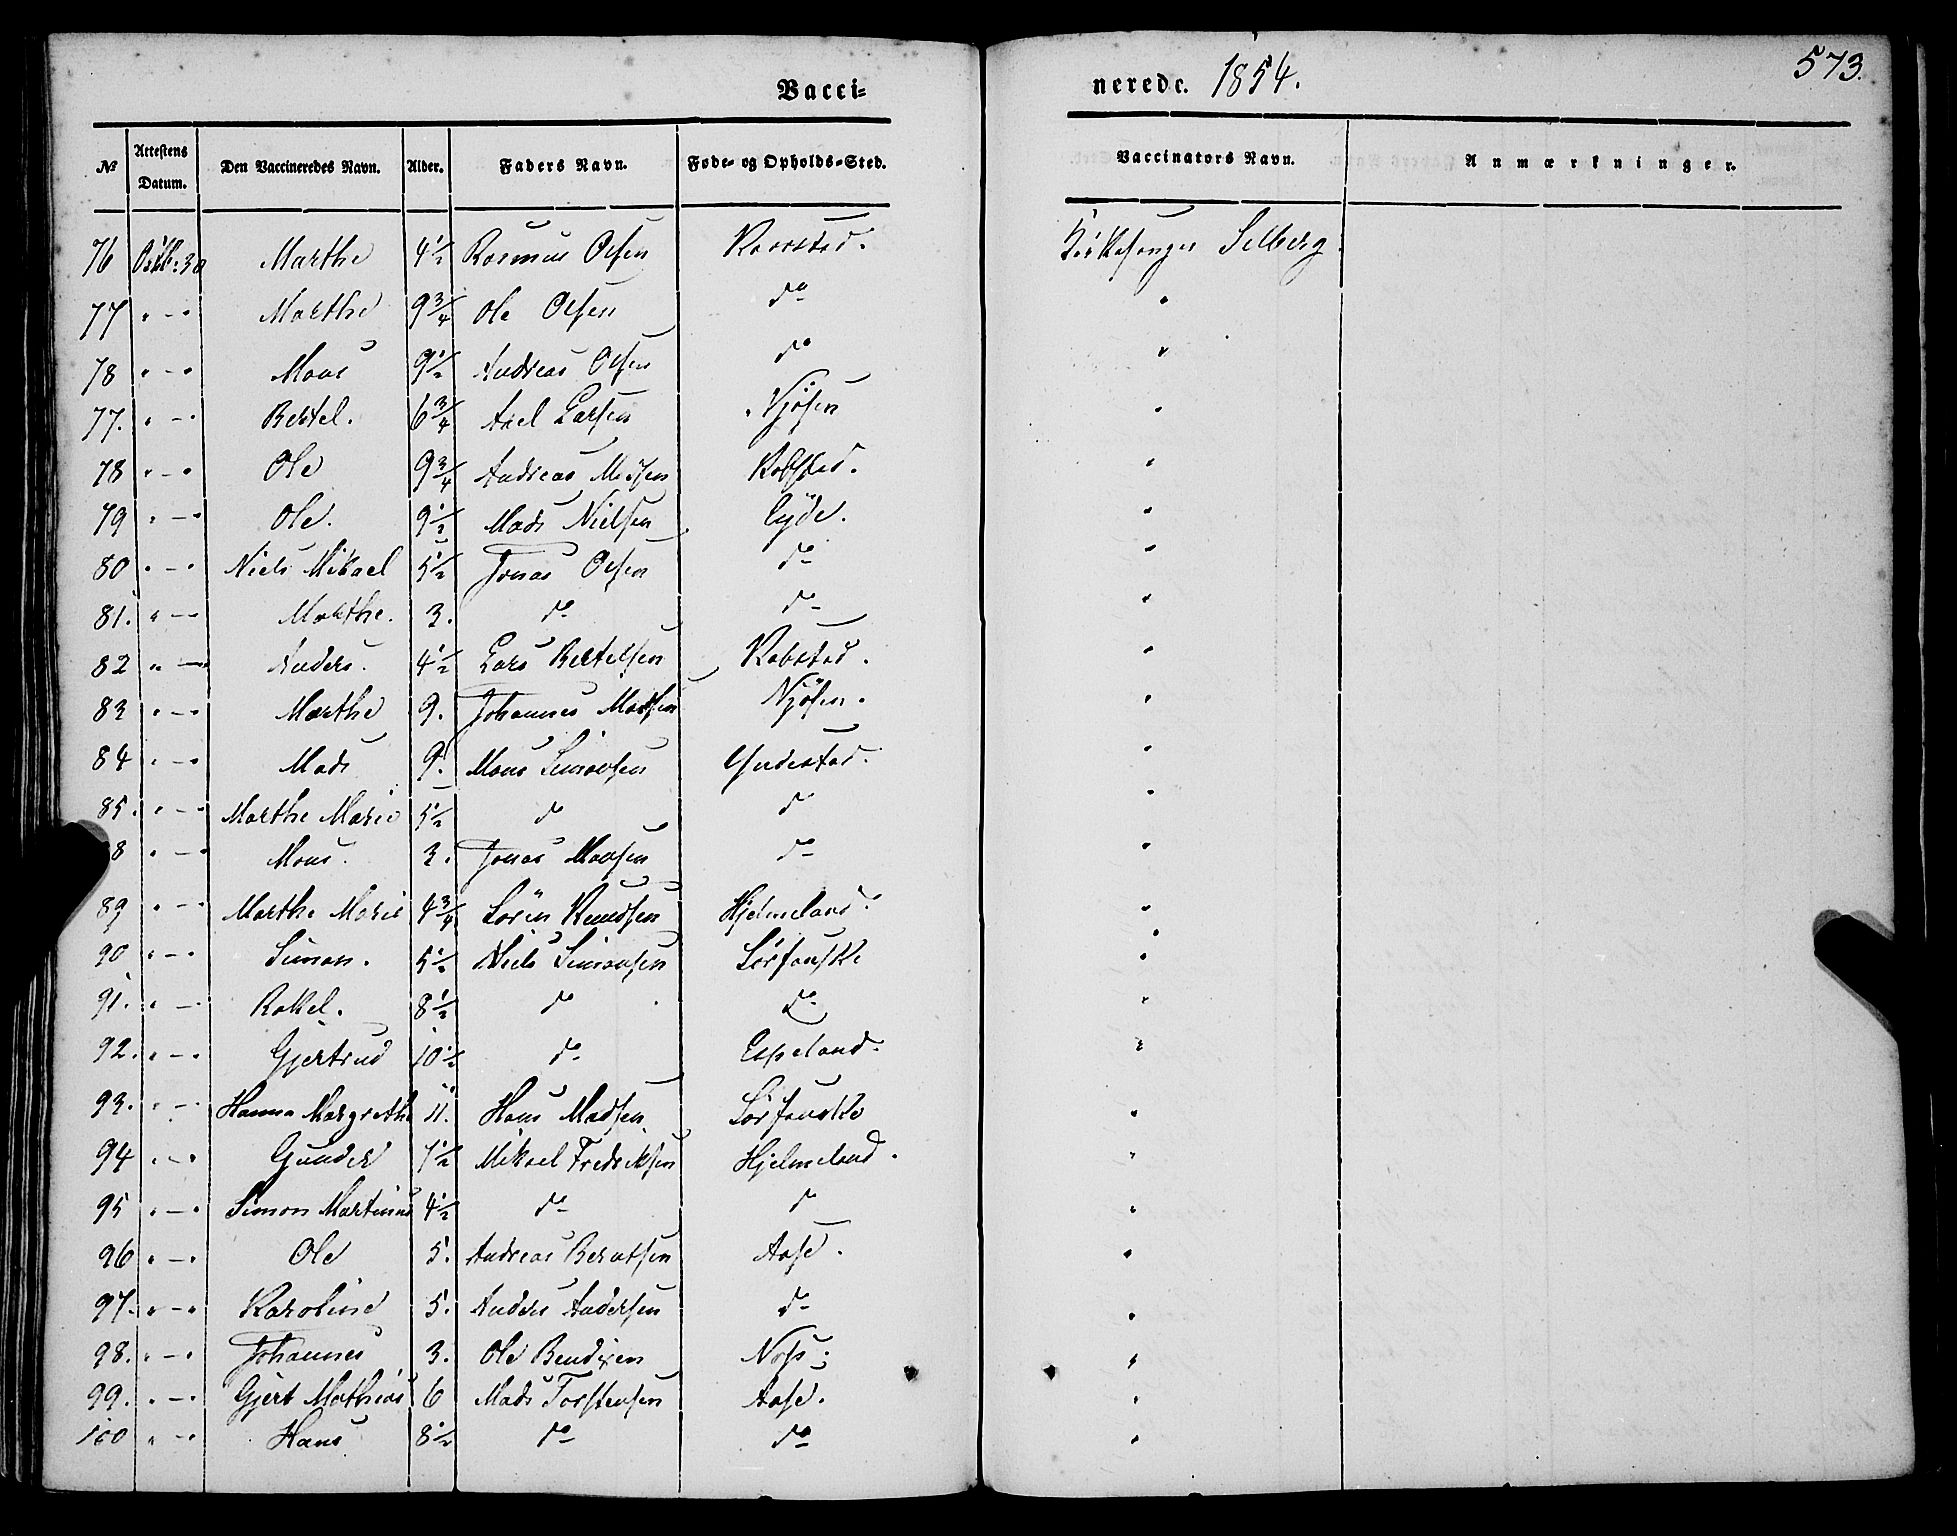 Vacci-
nerede. 1854.
573.
№ Attestens Datum. Den Vaccineredes Navn. Alder. Faders Navn. Føde- og Opholds-Sted. Vaccinators Navn. Anmærkninger.
76 30 Marthe 4½ Rasmus Olsen Kirkesanger Selberg
77 " - " Marthe 9¾ Ole Olsen do "
78 " - " Mons 9½ Andreas Olsen do "
77. " - " Bertel. 6¾ Axel Larsen Njøsen "
78 " - " Ole 9¾ Andreas Madsen Robstad. "
79 " - " Ole. 9½ Mads Nielsen Eyde. "
80 " - " Niels Mikael 5½ Jonas Olsen do "
81. " - " Marthe. 3. do do "
82 " - " Anders. 4½ Lars Bertelsen Robstad. "
83 " - " Marthe 9. Johannes Madsen Njøsen. "
84 " - " Mads 9. Mons Simonsen Yndestad. "
85. " - " Marthe Marie 5½ do do "
8 " - " Mons. 3. Jonas Monsen do "
89 " - " Marthe Marie 4¾ Sørin Knudsen Hjelmeland. "
90 " - " Simon. 5½ Niels Simonsen Sørfonske "
91. " - " Rakel. 8½ do do "
92. " - " Gjertrud 10½ do Espeland. "
93. " - " Hanna Margrethe 11. Hans Madsen Sørfonske "
94 " - " Gunder 7½ Mikael Fredriksen Hjelmeland. "
95 " - " Simon Martinus 4½ do do "
96 " - " Ole 5. Andreas Berntsen Aase. "
97. " - " Karoline 5. Anders Andersen do "
98. " - " Johannes 3. Ole Bendixen "
99. " - " Gjert Mathias 6 Mads Torstensen Aase. "
100 " - " Hans 8½ do do "